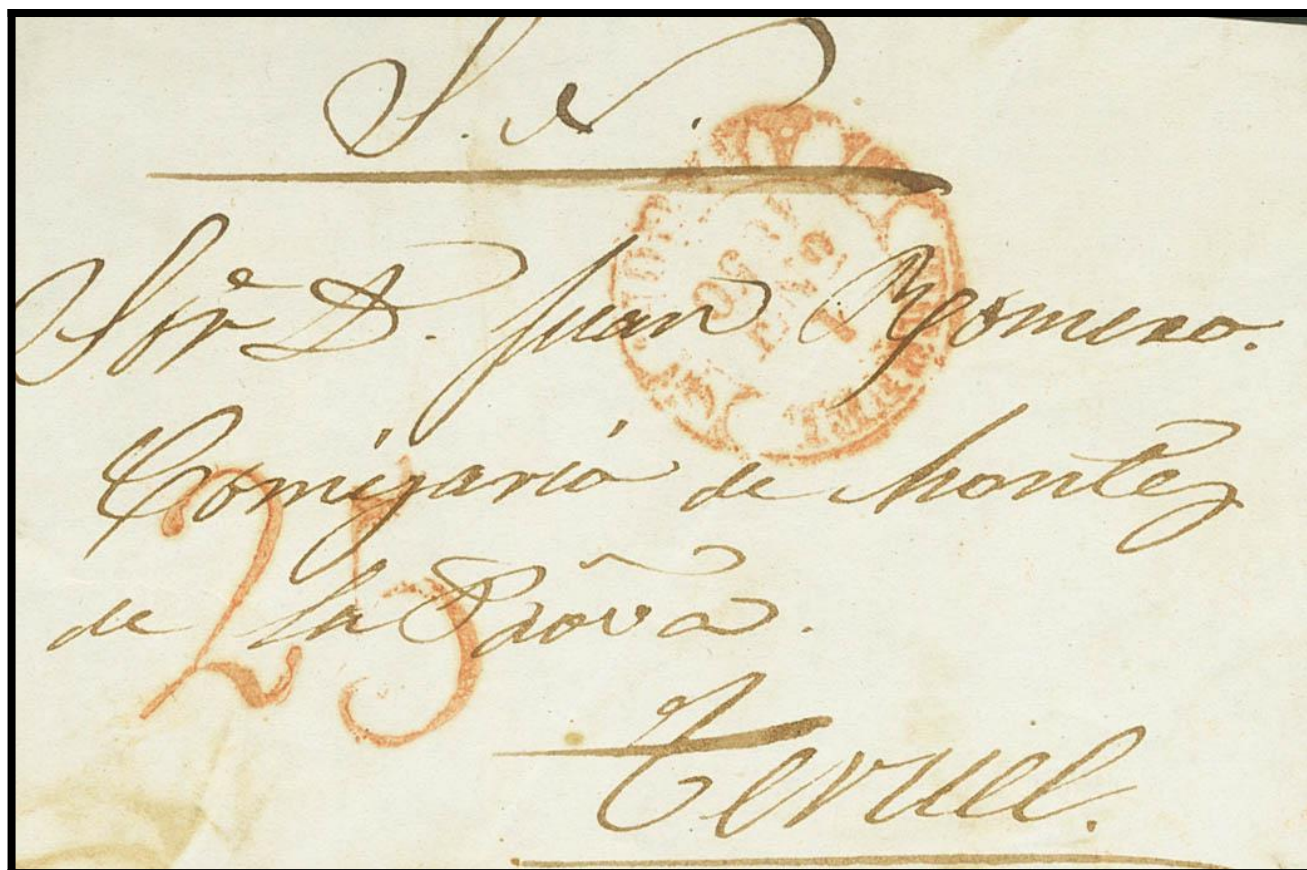 S. N.
Sor. D. Juan Romero.
Comisario de Montes
de la Prova.
25
Teruel.